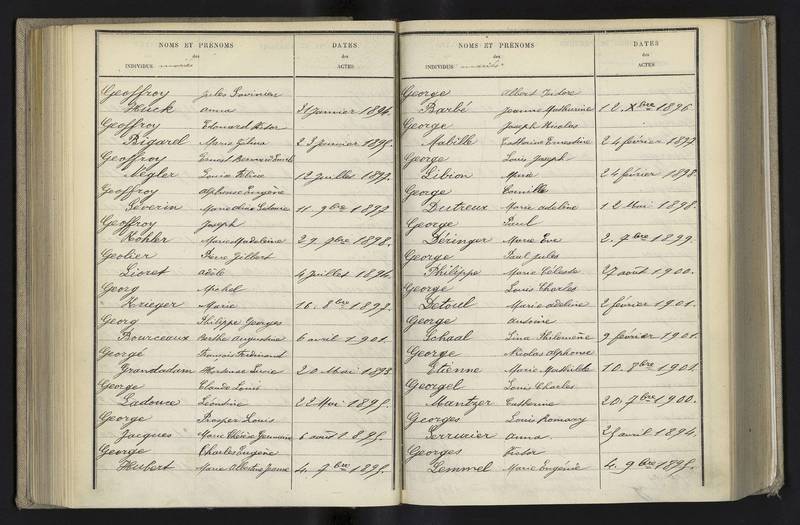 NOMS ET PRÉNOMS
des
INDIVIDUS mariés
DATES
des
ACTES
Geoffroy Jules Savinien
Huck Anna 31 Janvier 1894.
Geoffroy Edouard Victor
Bigarel Marie Célina 23 Janvier 1895.
Geoffroy Ernest Bernard Emile
Négler Louise Céline 12 Juillet 1897.
Geoffroy Alphonse Eugène
Séverin Marie Aline 11. 9bre 1897
Geoffroy Joseph
Kohler Marie Madeleine 29. 9bre 1898.
Geolier Pierre Gilbert
Lioret Adèle 4 Juillet 1894.
Georg Michel
Krieger Marie 16. 8bre 1893.
Georg Philippe Georges
Bourceaux Berthe Augustine 6 avril 1901.
Georgé François Ferdinand
Grandadam Hortense Lucie 20 Mai 1893
George Claude Louis
Ladoux Léontine 22 Mai 1895.
George Prosper Louis
Jacques Marie Thérèse Germaine 6 août 1895.
George Charles Eugène
Hubert Marie Albertine Jeanne 4. 9bre 1895.
NOMS ET PRÉNOMS
des
INDIVIDUS mariés
DATES
des
ACTES
George Albert Isidore
Barbé Jeanne Mathurine 12. Xbre 1896
George Joseph Nicolas
Mabille Catherine Ernestine 24 février 1897
George Louis Joseph
Libion Marie 24 février 1898
George Camille
Dutreux Marie Adeline 12 Mai 1898.
George Paul
Déringer Marie Eve 2. 9bre 1899.
George Paul Jules
Philippe Marie Céleste 27 août 1900.
George Louis Charles
Detoul Marie Adeline 2 février 1901.
George Antoine
Schaal Lina Philomène 9 février 1901.
George Nicolas Alphonse
Etienne Marie Mathilde 10. 8bre 1901.
Georgel Louis Charles
Mantzer Catherine 20. 9bre 1900.
Georges Louis Romary
Serrurier Anna. 25 avril 1894.
Georges Victor
Lemmel Marie Eugénie 4. 9bre 1895.